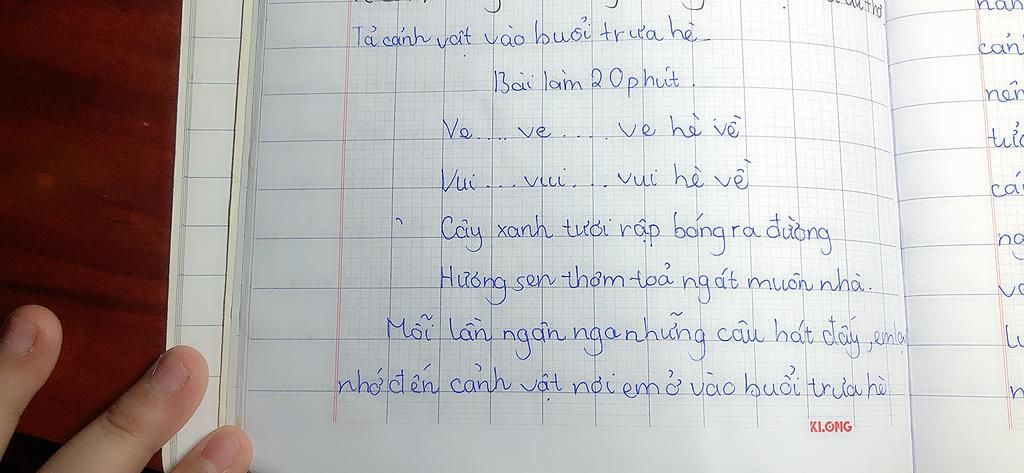 Tả cảnh vật vào buổi trưa hè
Bài làm 20 phút.
Ve.... ve ..... ve hè về
Vui... vui... vui hè về
Cây xanh tươi rập bóng ra đường
Hương sen thơm toả ngát muôn nhà.
Mỗi lần ngân nga những câu hát đấy, em lại
nhớ đến cảnh vật nơi em ở vào buổi trưa hè
KLONG